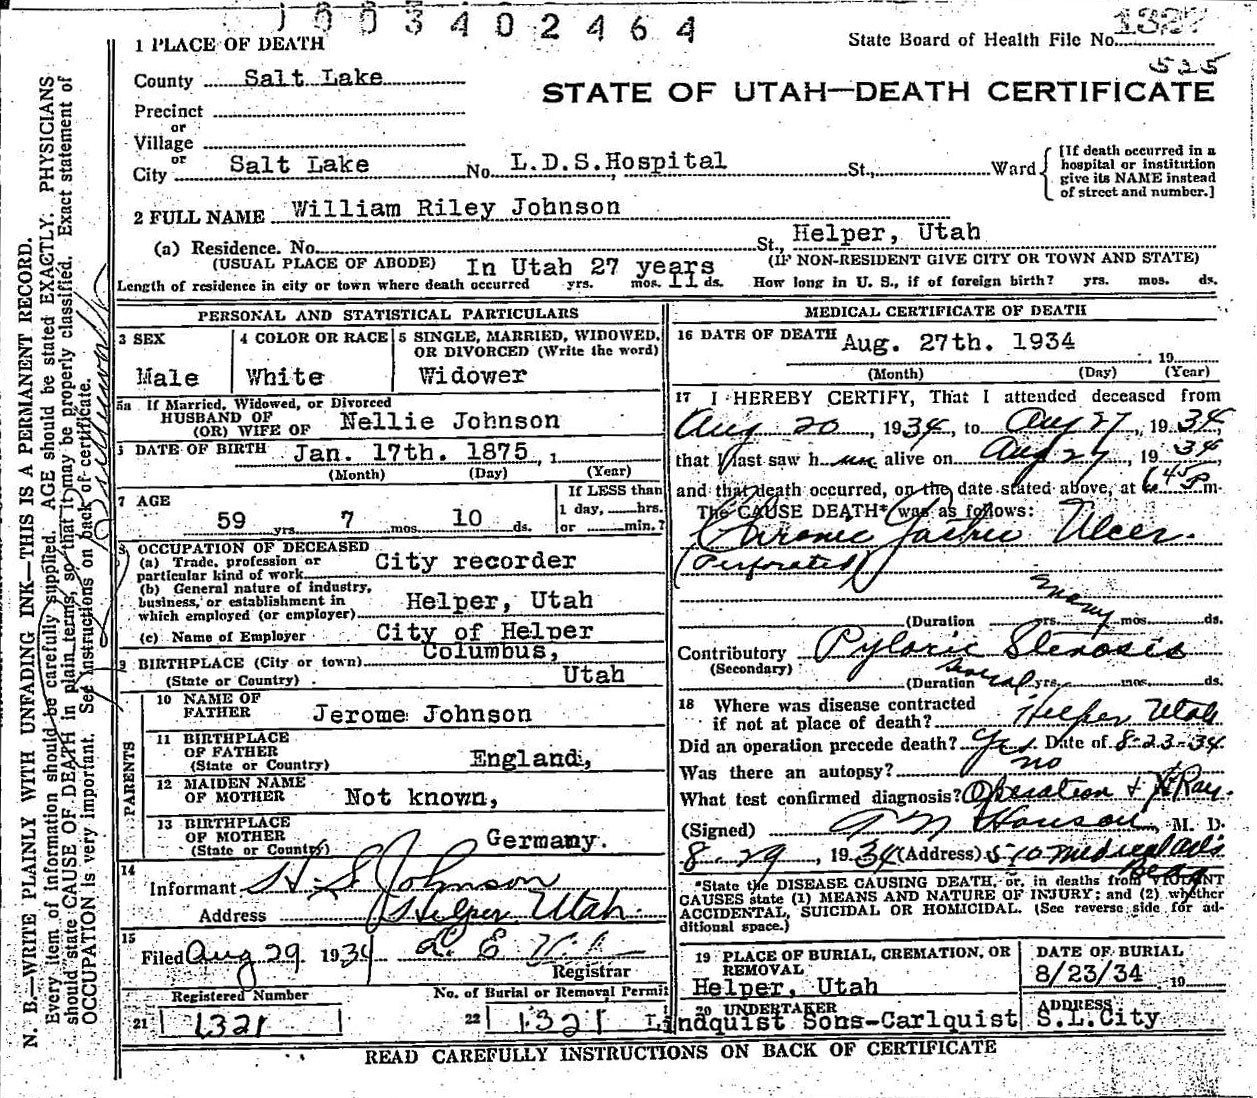 1003402464
State Board of Health File No. 1327
525
1 PLACE OF DEATH
County Salt Lake
STATE OF UTAH—DEATH CERTIFICATE
Precinct
or
Village
or
City Salt Lake No. L.D.S.Hospital St., Ward
[If death occurred in a
hospital or institution
give its NAME instead
of street and number.]
2 FULL NAME William Riley Johnson
(a) Residence. No. St., Helper, Utah
(USUAL PLACE OF ABODE) In Utah 27 years (IF NON-RESIDENT GIVE CITY OR TOWN AND STATE)
Length of residence in city or town where death occurred yrs. mos. 11 ds. How long in U. S., if of foreign birth? yrs. mos. ds.
PERSONAL AND STATISTICAL PARTICULARS
3 SEX
Male
4 COLOR OR RACE
White
5 SINGLE, MARRIED, WIDOWED,
OR DIVORCED (Write the word)
Widower
5a If Married, Widowed, or Divorced
HUSBAND OF
(OR) WIFE OF Nellie Johnson
DATE OF BIRTH Jan. 17th. 1875, 1
(Month) (Day) (Year)
7 AGE
59 yrs. 7 mos. 10 ds.
If LESS than
1 day, hrs.
or min.?
OCCUPATION OF DECEASED
(a) Trade, profession or
particular kind of work City recorder
(b) General nature of industry,
business, or establishment in
which employed (or employer) Helper, Utah
(c) Name of Employer City of Helper
9 BIRTHPLACE (City or town) Columbus,
(State or Country) Utah
PARENTS
10 NAME OF
FATHER Jerome Johnson
11 BIRTHPLACE
OF FATHER
(State or Country) England,
12 MAIDEN NAME
OF MOTHER Not known,
13 BIRTHPLACE
OF MOTHER
(State or Country) Germany.
14
Informant H S Johnson
Address Helper Utah
15
Filed Aug 29 1934
Registrar
Registered Number
21 1321
No. of Burial or Removal Permit
22 1321
MEDICAL CERTIFICATE OF DEATH
16 DATE OF DEATH Aug. 27th. 1934, 19
(Month) (Day) (Year)
17 I HEREBY CERTIFY, That I attended deceased from
Aug 20, 1934, to Aug 27, 1934,
that I last saw him alive on Aug 27, 1934,
and that death occurred, on the date stated above, at 6 45 P m.
The CAUSE DEATH* was as follows:
Chronic Gastric Ulcer.
(Perforated)
(Duration many yrs. mos. ds.
Contributory Pyloric Stenosis
(Secondary)
(Duration several yrs. mos. ds.
18 Where was disease contracted
if not at place of death? Helper Utah
Did an operation precede death? Yes Date of 8-23-34
Was there an autopsy? no
What test confirmed diagnosis? Operation & X Ray.
(Signed) M. D.
8-29, 1934 (Address) 510 Medical Arts
Bldg
*State the DISEASE CAUSING DEATH, or, in deaths from VIOLENT
CAUSES state (1) MEANS AND NATURE OF INJURY; and (2) whether
ACCIDENTAL, SUICIDAL OR HOMICIDAL. (See reverse side for ad-
ditional space.)
19 PLACE OF BURIAL, CREMATION, OR
REMOVAL
Helper, Utah
DATE OF BURIAL
8/23/34 19
20 UNDERTAKER
Lindquist Sons-Carlquist
ADDRESS
S.L.City
READ CAREFULLY INSTRUCTIONS ON BACK OF CERTIFICATE
N. B.—WRITE PLAINLY WITH UNFADING INK—THIS IS A PERMANENT RECORD.
Every item of information should be carefully supplied. AGE should be stated EXACTLY. PHYSICIANS
should state CAUSE OF DEATH in plain terms, so that it may be properly classified. Exact statement of
OCCUPATION is very important. See instructions on back of certificate.